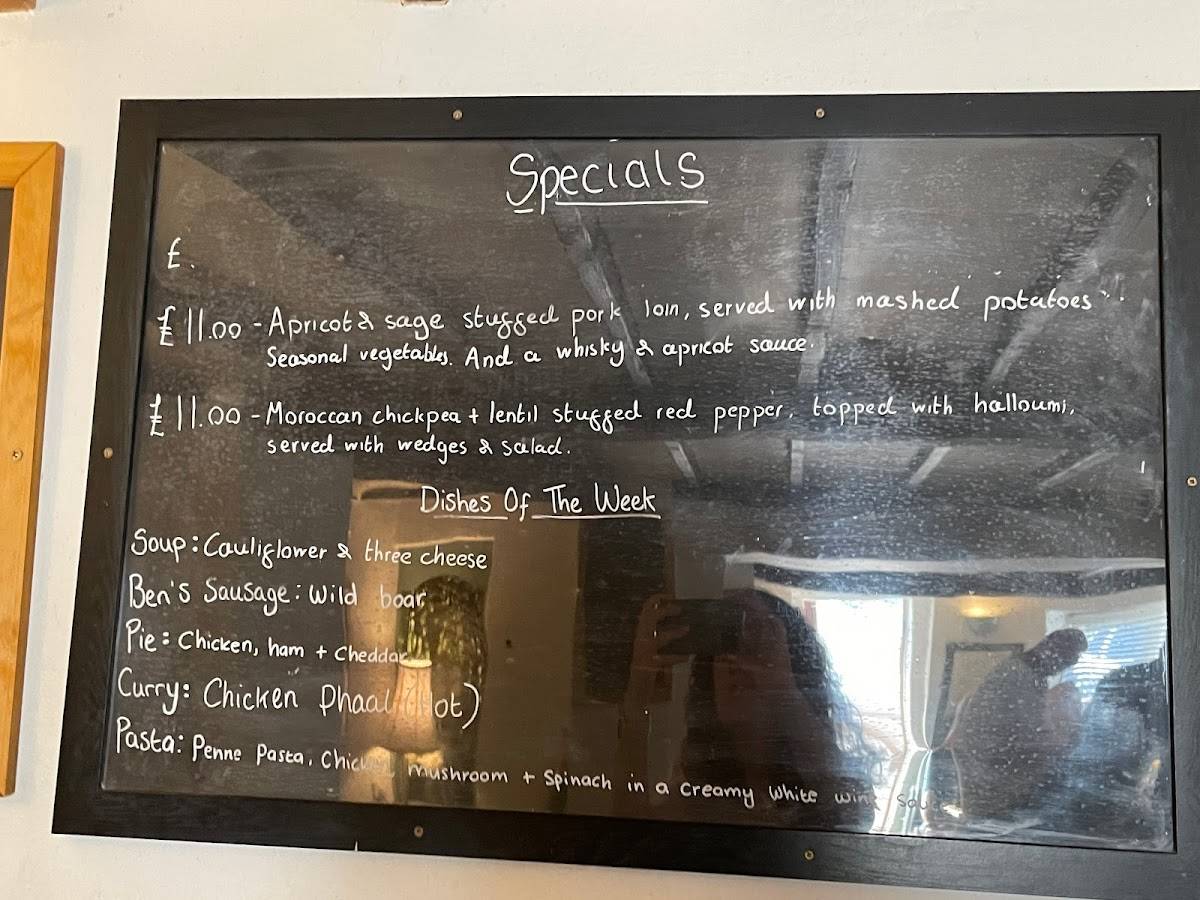 Specials
£.
£11.00 - Apricot & sage stuffed pork loin, served with mashed potatoes
Seasonal vegetables. And a whisky & apricot sauce.
£11.00 - Moroccan chickpea + lentil stuffed red pepper, topped with halloumi,
served with wedges & salad.
Dishes Of The Week
Soup: Cauliflower & three cheese
Ben's Sausage: Wild boar
Pie: Chicken, ham + Cheddar
Curry: Chicken Phaal (Hot)
Pasta: Penne Pasta, Chicken, mushroom + Spinach in a Creamy White wine sauce